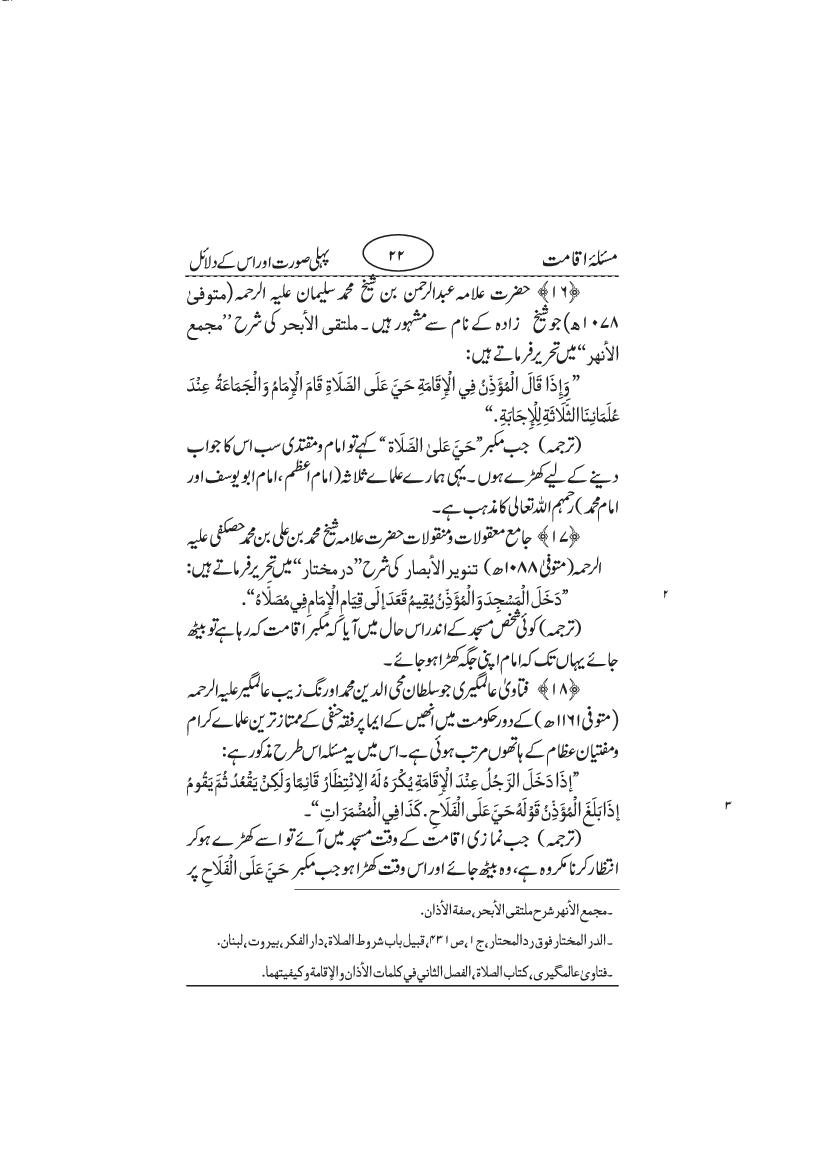 مسئلۂ اقامت ۲۲ پہلی صورت اور اس کے دلائل
﴿۱۶﴾ حضرت علامہ عبدالرحمن بن شیخ محمد سلیمان علیہ الرحمہ (متوفیٰ
۱۰۷۸ھ) جو شیخ زادہ کے نام سے مشہور ہیں۔ ملتقی الأبحر کی شرح ’’مجمع
الأنهر‘‘ میں تحریر فرماتے ہیں:
”وَإِذَا قَالَ الْمُؤَذِّنُ فِي الْإِقَامَةِ حَيَّ عَلَى الصَّلَاةِ قَامَ الْإِمَامُ وَالْجَمَاعَةُ عِنْدَ
عُلَمَائِنَا الثَّلَاثَةِ لِلْإِجَابَةِ.“
(ترجمہ) جب مکبر ”حَيَّ عَلىٰ الصَّلَاة“ کہے تو امام و مقتدی سب اس کا جواب
دینے کے لیے کھڑے ہوں۔ یہی ہمارے علماے ثلاثہ (امام اعظم، امام ابو یوسف اور
امام محمد) رحمہم اللہ تعالی کا مذہب ہے۔
﴿۱۷﴾ جامع معقولات و منقولات حضرت علامہ شیخ محمد بن علی بن محمد حصکفی علیہ
الرحمہ (متوفیٰ ۱۰۸۸ھ) تنویر الأبصار کی شرح ”در مختار“ میں تحریر فرماتے ہیں:
”دَخَلَ الْمَسْجِدَ وَالْمُؤَذِّنُ يُقِيمُ قَعَدَ إلَى قِيَامِ الْإِمَامِ فِي مُصَلَّاهُ“. ۲
(ترجمہ) کوئی شخص مسجد کے اندر اس حال میں آیا کہ مکبر اقامت کہ رہا ہے تو بیٹھ
جائے یہاں تک کہ امام اپنی جگہ کھڑا ہو جائے۔
﴿۱۸﴾ فتاویٰ عالمگیری جو سلطان محی الدین محمد اورنگ زیب عالمگیر علیہ الرحمہ
(متوفی ۱۱۶۱ھ) کے دور حکومت میں انھیں کے ایما پر فقہ حنفی کے ممتاز ترین علماے کرام
و مفتیان عظام کے ہاتھوں مرتب ہوئی ہے۔ اس میں یہ مسئلہ اس طرح مذکور ہے:
”إذَا دَخَلَ الرَّجُلُ عِنْدَ الْإِقَامَةِ يُكْرَهُ لَهُ الِانْتِظَارُ قَائِمًا وَلَكِنْ يَقْعُدُ ثُمَّ يَقُومُ
إذَا بَلَغَ الْمُؤَذِّنُ قَوْلَهُ حَيَّ عَلَى الْفَلَاحِ. كَذَا فِي الْمُضْمَرَاتِ“۔ ۳
(ترجمہ) جب نمازی اقامت کے وقت مسجد میں آئے تو اسے کھڑے ہو کر
انتظار کرنا مکروہ ہے، وہ بیٹھ جائے اور اس وقت کھڑا ہو جب مکبر حَيَّ عَلَى الْفَلَاحِ پر
۔مجمع الأنهر شرح ملتقى الأبحر، صفة الأذان.
۔الدر المختار فوق رد المحتار، ج۱، ص۴۳۱، قبیل باب شروط الصلاة، دار الفکر، بیروت، لبنان.
۔فتاویٰ عالمگیری، کتاب الصلاة، الفصل الثاني في كلمات الأذان والإقامة وكيفيتهما.